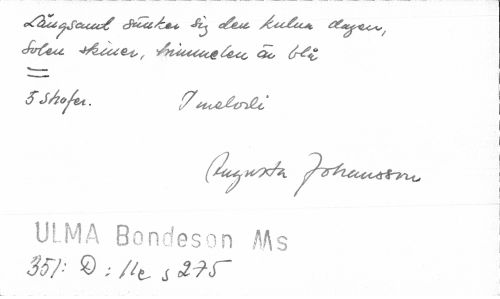 Långsamt sänker sig den kulna dagen,
solen skiner, himmelen är blå
5 strofer. 1 melodi
Augusta Johansson
ULMA Bondeson Ms
351: D: 11e s 275